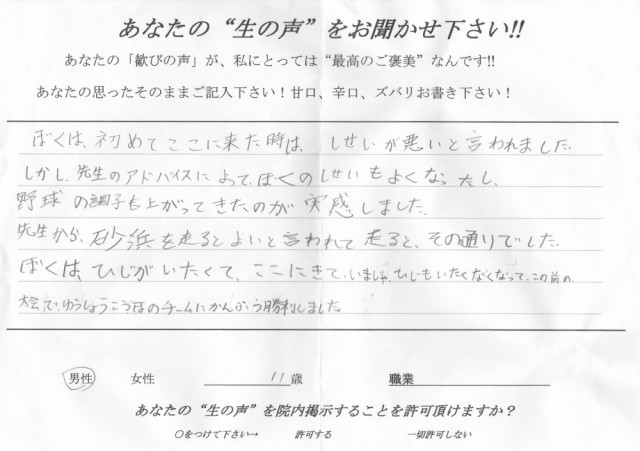 あなたの“生の声”をお聞かせ下さい!!
あなたの「歓びの声」が、私にとっては“最高のご褒美”なんです!!
あなたの思ったそのままご記入下さい！甘口、辛口、ズバリお書き下さい！
ぼくは、初めてここに来た時は、しせいが悪いと言われました。
しかし、先生のアドバイスによって、ぼくのしせいもよくなったし、
野球の調子も上がってきたのが実感しました。
先生から、砂浜を走るとよいと言われて走ると、その通りでした。
ぼくは、ひじがいたくて、ここにきて、いまじゃ、ひじもいたくなくなって、この前の、
大会で、ゆうしょうこうほのチームにかんぷう勝利しました。
男性 女性 11歳 職業
あなたの“生の声”を院内掲示することを許可頂けますか？
○をつけて下さい→ 許可する 一切許可しない